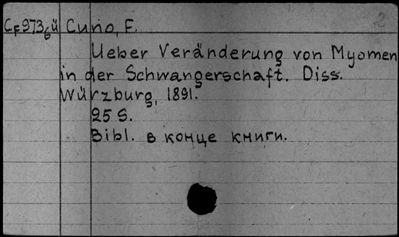 Cf 973 6ü Cuno, F.
Ueber Veränderung von Myomen
in der Schwangerschaft. Diss.
Würzburg, 1891.
25 S.
Bibl. в конце книги.